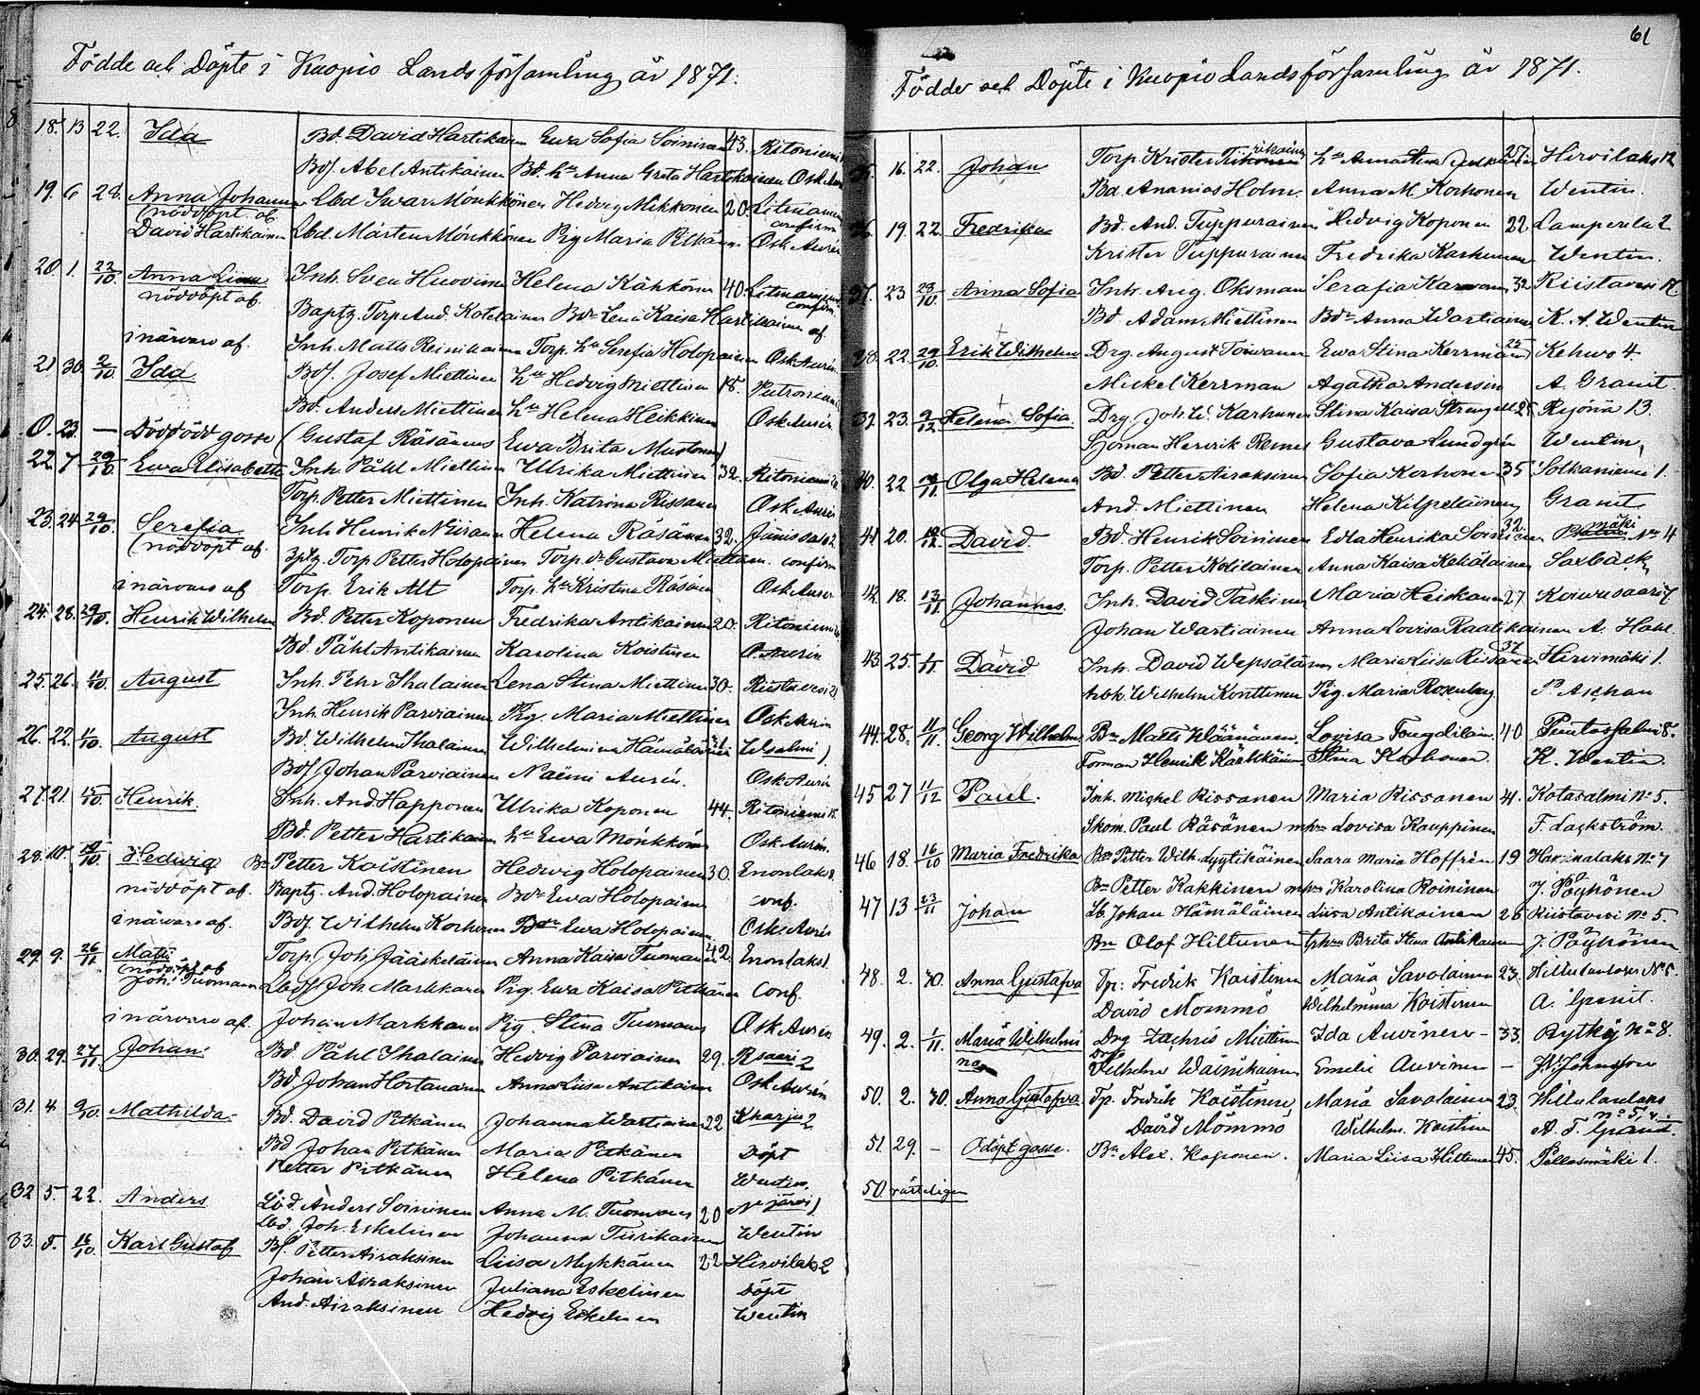 Födde och Döpte i Kuopio Landsförsamling år 1871.
18. 13 22. Ida Bd. David Hartikain Ewa Sofia Soininen 43. Ritoniemi
Bdf. Abel Antikainen Bd. hu Anna Greta Hartikainen Osk. Aurén
19. 6 28. Anna Johanna Lbd Iwar Mönkkönen Hedvig Mikkonen 20. Litmaniemi
(nöddöpt. af. confirm
David Hartikain Lbd. Mårten Mönkkönen Pig Maria Pitkän. Osk. Aurén
20. 1. 22/10. Anna Liisa Inh. Sven Huovinen Helena Kähkönen 40. Litmaniemi
nöddöpt af. Baptz. Torp And. Kotelainen Bdr Lena Kaisa Hartikainen af confirm.
i närvaro af. Inh. Matts Reinikainen Torp. hu Serefia Holopainen Osk Aurén
21 30. 2/10 Ida Bdf. Josef Miettinen hu Hedvig Miettinen 18. Putroniemi
Bd. Anders Miettinen hu Helena Heikkinen Osk Aurén
0. 23. — Dödfödd gosse (Gustaf Räsänens Ewa Brita Mustonen)
22. 7 29/10. Ewa Elisabeth Inh. Påhl Miettinen Ulrika Miettinen 32. Ritoniemi
Torp. Petter Miettinen Inh. Katrina Rissanen Osk. Aurén
23. 24 29/10. Serefia Inh Henrik Niiranen Helena Räsänen 32. Jänissalo 2
(nöddöpt af. Bptz. Torp Petter Holopainen Torp. dr Gustava Miettinen. confirm
i närvaro af Torp. Erik Alt Torp. hu Kristina Räsänen Osk Aurén
24. 28. 29/10. Henrik Wilhelm Bd. Petter Koponen Fredrika Antikainen 20. Ritoniemi
Bd. Påhl Antikainen Karolina Koistinen O. Aurén
25. 26. August Inh. Pehr Ihalainen Lena Stina Miettinen 30. Riistavesi 2
Inh. Henrik Parviainen Pig. Maria Miettinen Osk Aurén
26. 22. August Bd. Wilhelm Ihalainen Wilhelmina Hämäläinen Wsalmi 1
Bdf Johan Parviainen Naëmi Aurén. Osk Aurén
27. 21. Henrik. Inh. And. Happonen Ulrika Koponen 44. Ritoniemi 15.
Bd. Petter Hartikainen hu Ewa Mönkkönen Osk Aurén.
28. 10. Hedwig Bn Petter Koistinen Hedwig Holopainen 30. Enonlaks
nöddöpt af. Baptz. And. Holopainen Bdr Ewa Holopainen conf.
i närvaro af. Bdf. Wilhelm Korhonen Ewa Holopainen. Osk. Aurén
29. 9. 26/11. Matts Torp. Joh. Jääskeläinen Anna Kaisa Tuomainen 42. Enonlaks 1.
(nöddöpt af
Joh. Tuomainen Lbdf Joh. Markkanen Pig. Ewa Kaisa Pitkänen Conf.
i närvaro af. Johan Markkanen Pig. Stina Tuomainen Osk Aurén
30. 29. 27/11 Johan. Bd. Påhl Ihalainen Hedvig Parviainen 29. Rsaari 2
Bd Johan Hortanainen Anna Liisa Antikainen Osk Aurén
31. 4. 9/10. Mathilda. Bd. David Pitkänen Johanna Wartiainen 22 Kharju 2
Bd Johan Pitkänen Maria Pitkänen Döpt
Petter Pitkänen Helena Pitkänen Wentin.
32. 5. 22. Anders Lbd. Anders Soininen Anna M. Tuomainen 20 Njärvi 1
Lbd. Joh. Eskelinen Johanna Tiirikainen Wentin
33. 5. 16/10. Karl Gustaf Bf. Petter Airaksinen Liisa Mykkänen 22 Hirvilaks 2
Johan Airaksinen Juliana Eskelinen Döpt
And. Airaksinen Hedvig Eskelinen Wentin
61
Födde och Döpte i Kuopio Landsförsamling år 1871.
35. 16. 22. Johan Torp Krister Tiirikainen hu Anna Stina Julkunen 25. Hirvilaks 12
Bd. Ananias Holm. Anna M. Korhonen Wentin.
36. 19. 22. Fredrika Bd. And. Tuppurainen Hedvig Koponen 22 Lamperila 2
Krister Tuppurainen Fredrika Karhunen Wentin.
37. 23 28/10. Anna Sofia Inh. Aug. Oksman Serafia Karvonen 32 Riistavesi 17
Bd. Adam Miettinen Bdr Anna Wartiainen K. A. Wentin
38. 22. 29/10. Erik Wilhelm Drg. August Toivanen Ewa Stina Kerrman 25 Kehvo 4.
Mickel Kerrman Agatha Andersin A. Granit.
39. 23. 9/12 Helena Sofia. Drg. Joh. W. Karhunen Stina Kaisa Strengell 28 Ryönä 13.
Sjöman Henrik Remes Gustava Lundgrén Wentin,
40. 22 Olga Helena Bd. Petter Airaksinen Sofia Korhonen 35 Sotkaniemi 1.
And. Miettinen Helena Kilpeläinen Granit
41 20. David. Bd. Henrik Soininen Edla Henrika Soininen 32. mäki No 4
Torp. Petter Kolilainen Anna Kaisa Kekäläinen Saxbäck
42. 18. 13/11. Johannes. Inh. David Taskinen Maria Heiskanen 27 Koivusaari 7
Johan Wartiainen Anna Lovisa Raatikainen A. Hahl
43 25. David Inh. David Wepsäläinen Maria Liisa Rissanen 37 Hirvimäki 1.
Arbk. Wilhelm Konttinen Pig. Maria Rosenberg P. Aschan
44. 28. 4/11. Georg Wilhelm Bn Matts Wäänänen. Lovisa Fougdilain. 40 Puutosfalmi 8.
Forman Henrik Kärkkäinen Stina Korhonen K. Wentin.
45 27 11/12 Paul. Inh. Michel Rissanen Maria Rissanen 41. Kotasalmi No 5.
Skom. Paul Räsänen m hu Lovisa Kauppinen F. Lackström.
46 18. 16/10 Maria Fredrika Bn Petter Wilh. Lyytikäinen Saara Maria Hoffrén 19 Haminalaks No 7
Bn Petter Kakkinen m hu Karolina Roininen J. Pöyhönen
47 13 23/11 Johan Lb. Johan Hämäläinen Liisa Antikainen 26 Riistavesi No 5.
Bn Olof Hiltunen Brita Stina Antikainen J. Pöyhönen
48. 2. 30. Anna Gustafva Tp. Fredrik Koistinen Maria Savolainen 23. Hiltulanlaks No 5.
David Mömmö Wilhelmina Koistinen A. Granit.
49. 2. 1/11. Maria Wilhelmi Drg Zachris Miettinen Ida Auvinen - 33. Rytky No 8
na Drg Wilhelm Wäinikäinen Emelie Auvinen — J. W. Johnsson
50. 2. 30. Anna Gustafva Tp. Fredrik Koistinen, Maria Savolainen 23. Hiltulanlaks
David Mömmö Wilhelm. Koistinen No 5.
A. F. Granit.
51. 29. — Odöpt gosse. Bn Alex. Koponen. Maria Liisa Hiltunen 45. Pellosmäki 1.
50 rätteligen